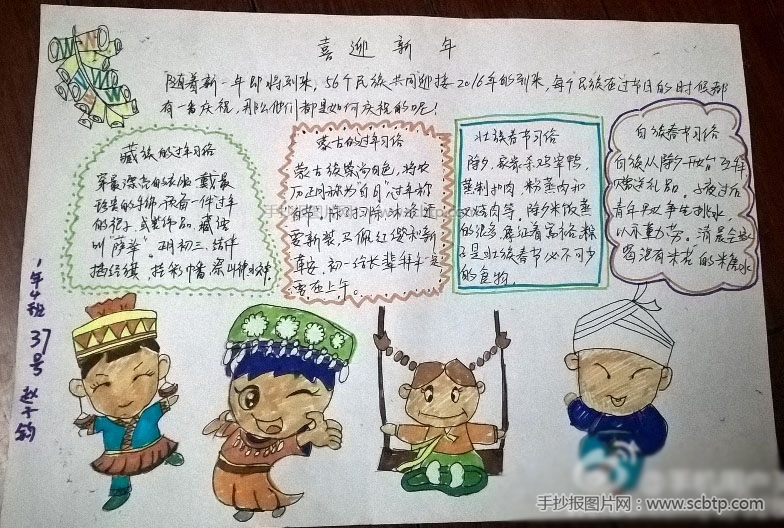 喜迎新年
随着新一年即将到来，56个民族共同迎接2016年的到来，每个民族在过节日的时候都
有一番庆祝，那么他们都是如何庆祝的呢！
藏族的过年习俗
穿最漂亮的衣服 戴最
珍贵的手饰 预备一件过年
的
叫"萨羊"。初三，结伴
插经幡，挂彩幡
蒙古的过年习俗
蒙古族崇尚白色，将农
历正月称为"白月"，过年称
白节，
要新装，马佩红缨和新
草安，初一给长辈拜年是
在上午。
壮族春节习俗
除夕，家家杀鸡宰鸭，
蒸制扣肉，粉蒸肉和
叉烧肉等，除夕米饭蒸
的很多，象征着富裕，粽
子是壮族春节必不可少
的食物。
白族春节习俗
白族从除夕开始互拜
赠送礼品，子夜过后
青年男女争先挑水，
以示勤劳。清晨全家
喝泡有"米花"的米糖水
1年4班 37号 赵
手抄报图片网：www.scbtp.com